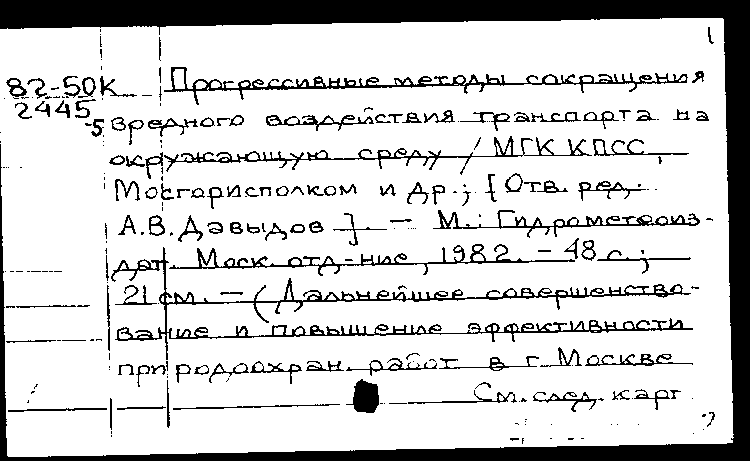 1
82-50К Прогрессивные методы сокращения
2445-5 вредного воздействия транспорта на
окружающую среду / МГК КПСС,
Мосгорисполком и др.; [Отв. ред.
А.В. Давыдов]. — М.: Гидрометеоиз-
дат. Моск. отд-ние, 1982. - 48 с.;
21 см. — (Дальнейшее совершенство-
вание и повышение эффективности
природоохран. работ в г. Москве
См. след. карт